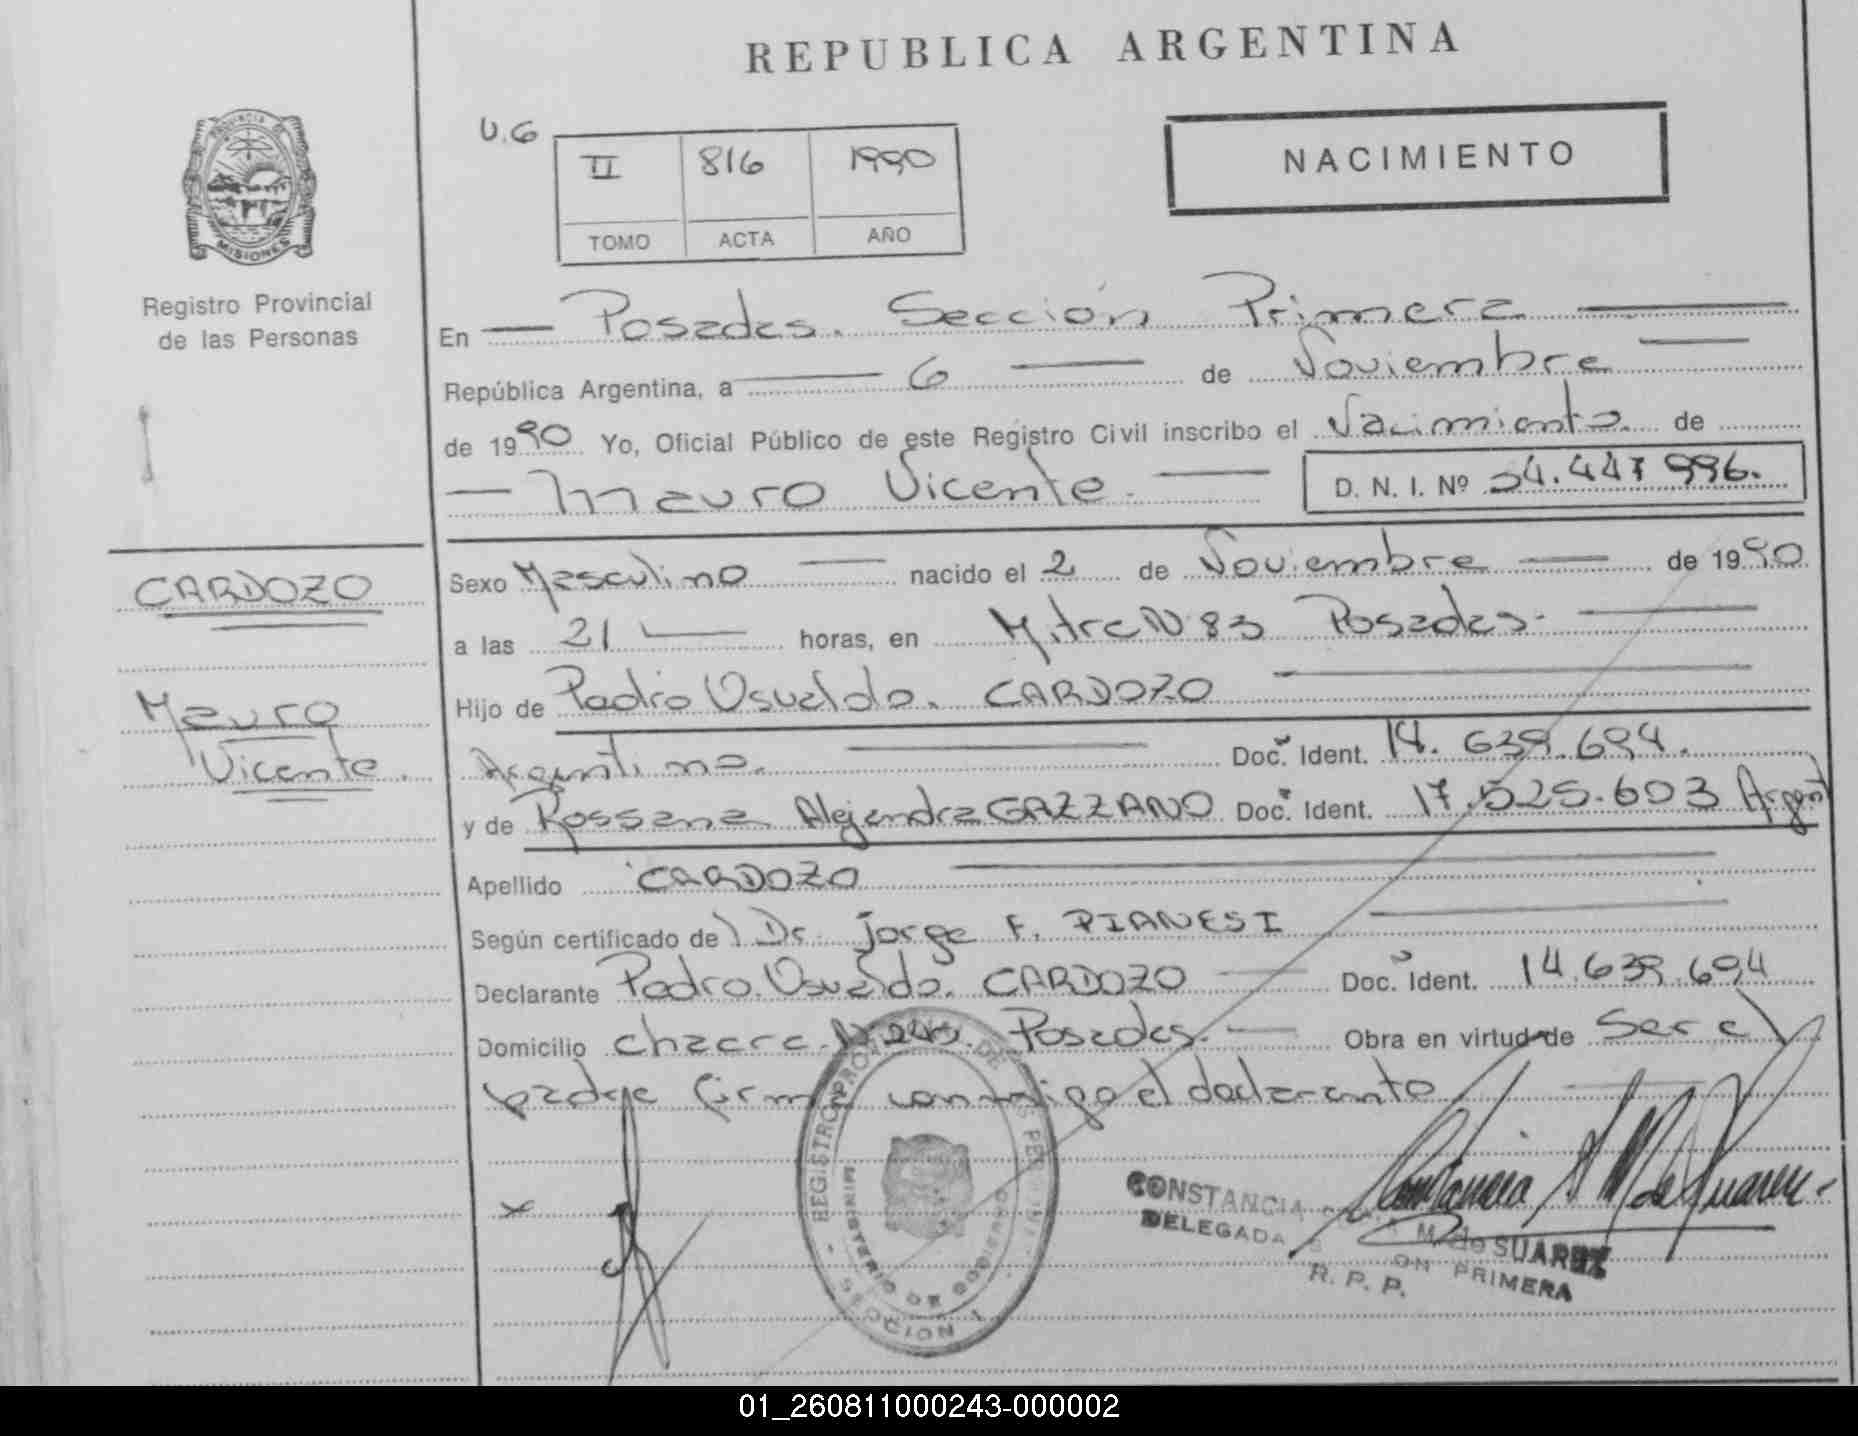 REPUBLICA ARGENTINA
U.G
II 816 1990
TOMO ACTA AÑO
NACIMIENTO
PROVINCIA DE
MISIONES
Registro Provincial
de las Personas
En Posadas. Sección Primera
República Argentina, a 6 de Noviembre
de 1990 Yo, Oficial Público de este Registro Civil inscribo el Nacimiento. de
Mauro Vicente. D. N. I. Nº 34.447 996.
CARDOZO
Mauro
Vicente.
Sexo Masculino nacido el 2 de Noviembre de 1990
a las 21 horas, en Mitre N 83 Posadas.
Hijo de Pedro Osvaldo. CARDOZO
Argentino. Doc. Ident. 14.639.694.
y de Rossana Alejandra GAZZANO Doc. Ident. 17.525.603 Argent
Apellido CARDOZO
Según certificado del Dr. Jorge F. PIANESI
Declarante Pedro Osvaldo. CARDOZO Doc. Ident. 14.639.694
Domicilio chacra Posadas. Obra en virtud de Ser el
padre firma conmigo el declarante
REGISTRO PROV DE
MINISTERIO DE GOBIERNO
SECCION 1
CONSTANCIA M. de SUAREZ
DELEGADA PRIMERA
R. P. P.
01_260811000243-000002